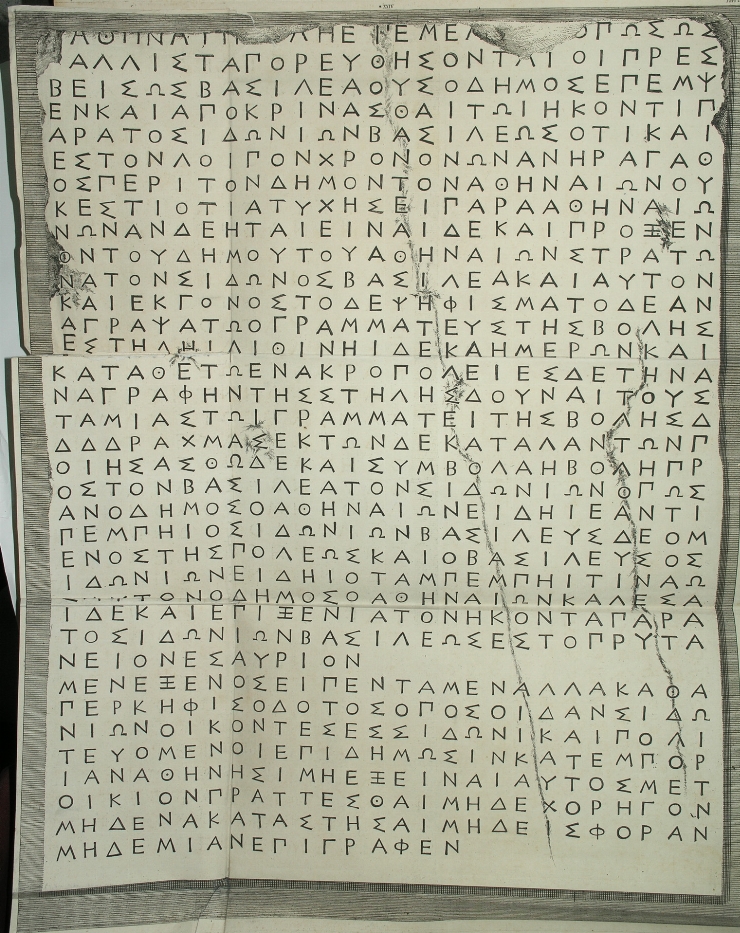 ΑΘΗΝΑ ΛΗΕ ΕΜΕΛ ΟΠΩΣΩΣ
ΑΛΛΙΣΤΑΠΟΡΕΥΘΗΣΟΝΤΑΙΟΙΠΡΕΣ
ΒΕΙΣΩΣΒΑΣΙΛΕΑΟΥΣΟΔΗΜΟΣΕΠΕΜΨ
ΕΝΚΑΙΑΠΟΚΡΙΝΑΣΘΑΙΤΩΙΗΚΟΝΤΙΠ
ΑΡΑΤΟΣΙΔΩΝΙΩΝΒΑΣΙΛΕΩΣΟΤΙΚΑΙ
ΕΣΤΟΝΛΟΙΠΟΝΧΡΟΝΟΝΩΝΑΝΗΡΑΓΑΘ
ΟΣΠΕΡΙΤΟΝΔΗΜΟΝΤΟΝΑΘΗΝΑΙΩΝΟΥ
ΚΕΣΤΙΟΤΙΑΤΥΧΗΣΕΙΠΑΡΑΑΘΗΝΑΙΩ
ΝΩΝΑΝΔΕΗΤΑΙΕΙΝΑΙΔΕΚΑΙΠΡΟΞΕΝ
ΟΝΤΟΥΔΗΜΟΥΤΟΥΑΘΗΝΑΙΩΝΣΤΡΑΤΩ
ΝΑΤΟΝΣΙΔΩΝΟΣΒΑΣΙΛΕΑΚΑΙΑΥΤΟΝ
ΚΑΙΕΚΓΟΝΟΣΤΟΔΕΨΗΦΙΣΜΑΤΟΔΕΑΝ
ΑΓΡΑΨΑΤΩΟΓΡΑΜΜΑΤΕΥΣΤΗΣΒΟΛΗΣ
ΕΣΤΗΛΗΙΛΙΘΙΝΗΙΔΕΚΑΗΜΕΡΩΝΚΑΙ
ΚΑΤΑΘΕΤΩΕΝΑΚΡΟΠΟΛΕΙΕΣΔΕΤΗΝΑ
ΝΑΓΡΑΦΗΝΤΗΣΣΤΗΛΗΣΔΟΥΝΑΙΤΟΥΣ
ΤΑΜΙΑΣΤΩΙΓΡΑΜΜΑΤΕΙΤΗΣΒΟΛΗΣΔ
ΔΔΔΡΑΧΜΑΣΕΚΤΩΝΔΕΚΑΤΑΛΑΝΤΩΝΠ
ΟΙΗΣΑΣΘΩΔΕΚΑΙΣΥΜΒΟΛΑΗΒΟΛΗΠΡ
ΟΣΤΟΝΒΑΣΙΛΕΑΤΟΝΣΙΔΩΝΙΩΝΟΠΩΣ
ΑΝΟΔΗΜΟΣΟΑΘΗΝΑΙΩΝΕΙΔΗΙΕΑΝΤΙ
ΠΕΜΠΗΙΟΣΙΔΩΝΙΩΝΒΑΣΙΛΕΥΣΔΕΟΜ
ΕΝΟΣΤΗΣΠΟΛΕΩΣΚΑΙΟΒΑΣΙΛΕΥΣΟΣ
ΙΔΩΝΙΩΝΕΙΔΗΙΟΤΑΜΠΕΜΠΗΙΤΙΝΑΩ
ΤΟΝΟΔΗΜΟΣΟΑΘΗΝΑΙΩΝΚΑΛΕΣΑ
ΙΔΕΚΑΙΕΠΙΞΕΝΙΑΤΟΝΗΚΟΝΤΑΠΑΡΑ
ΤΟΣΙΔΩΝΙΩΝΒΑΣΙΛΕΩΣΕΣΤΟΠΡΥΤΑ
ΝΕΙΟΝΕΣΑΥΡΙΟΝ
ΜΕΝΕΞΕΝΟΣΕΙΠΕΝΤΑΜΕΝΑΛΛΑΚΑΘΑ
ΠΕΡΚΗΦΙΣΟΔΟΤΟΣΟΠΟΣΟΙΔΑΝΣΙΔΩ
ΝΙΩΝΟΙΚΟΝΤΕΣΕΣΣΙΔΩΝΙΚΑΙΠΟΛΙ
ΤΕΥΟΜΕΝΟΙΕΠΙΔΗΜΩΣΙΝΚΑΤΕΜΠΟΡ
ΙΑΝΑΘΗΝΗΣΙΜΗΕΞΕΙΝΑΙΑΥΤΟΣΜΕΤ
ΟΙΚΙΟΝΠΡΑΤΤΕΣΘΑΙΜΗΔΕΧΟΡΗΓΟΝ
ΜΗΔΕΝΑΚΑΤΑΣΤΗΣΑΙΜΗΔΕΙΣΦΟΡΑΝ
ΜΗΔΕΜΙΑΝΕΠΙΓΡΑΦΕΝ